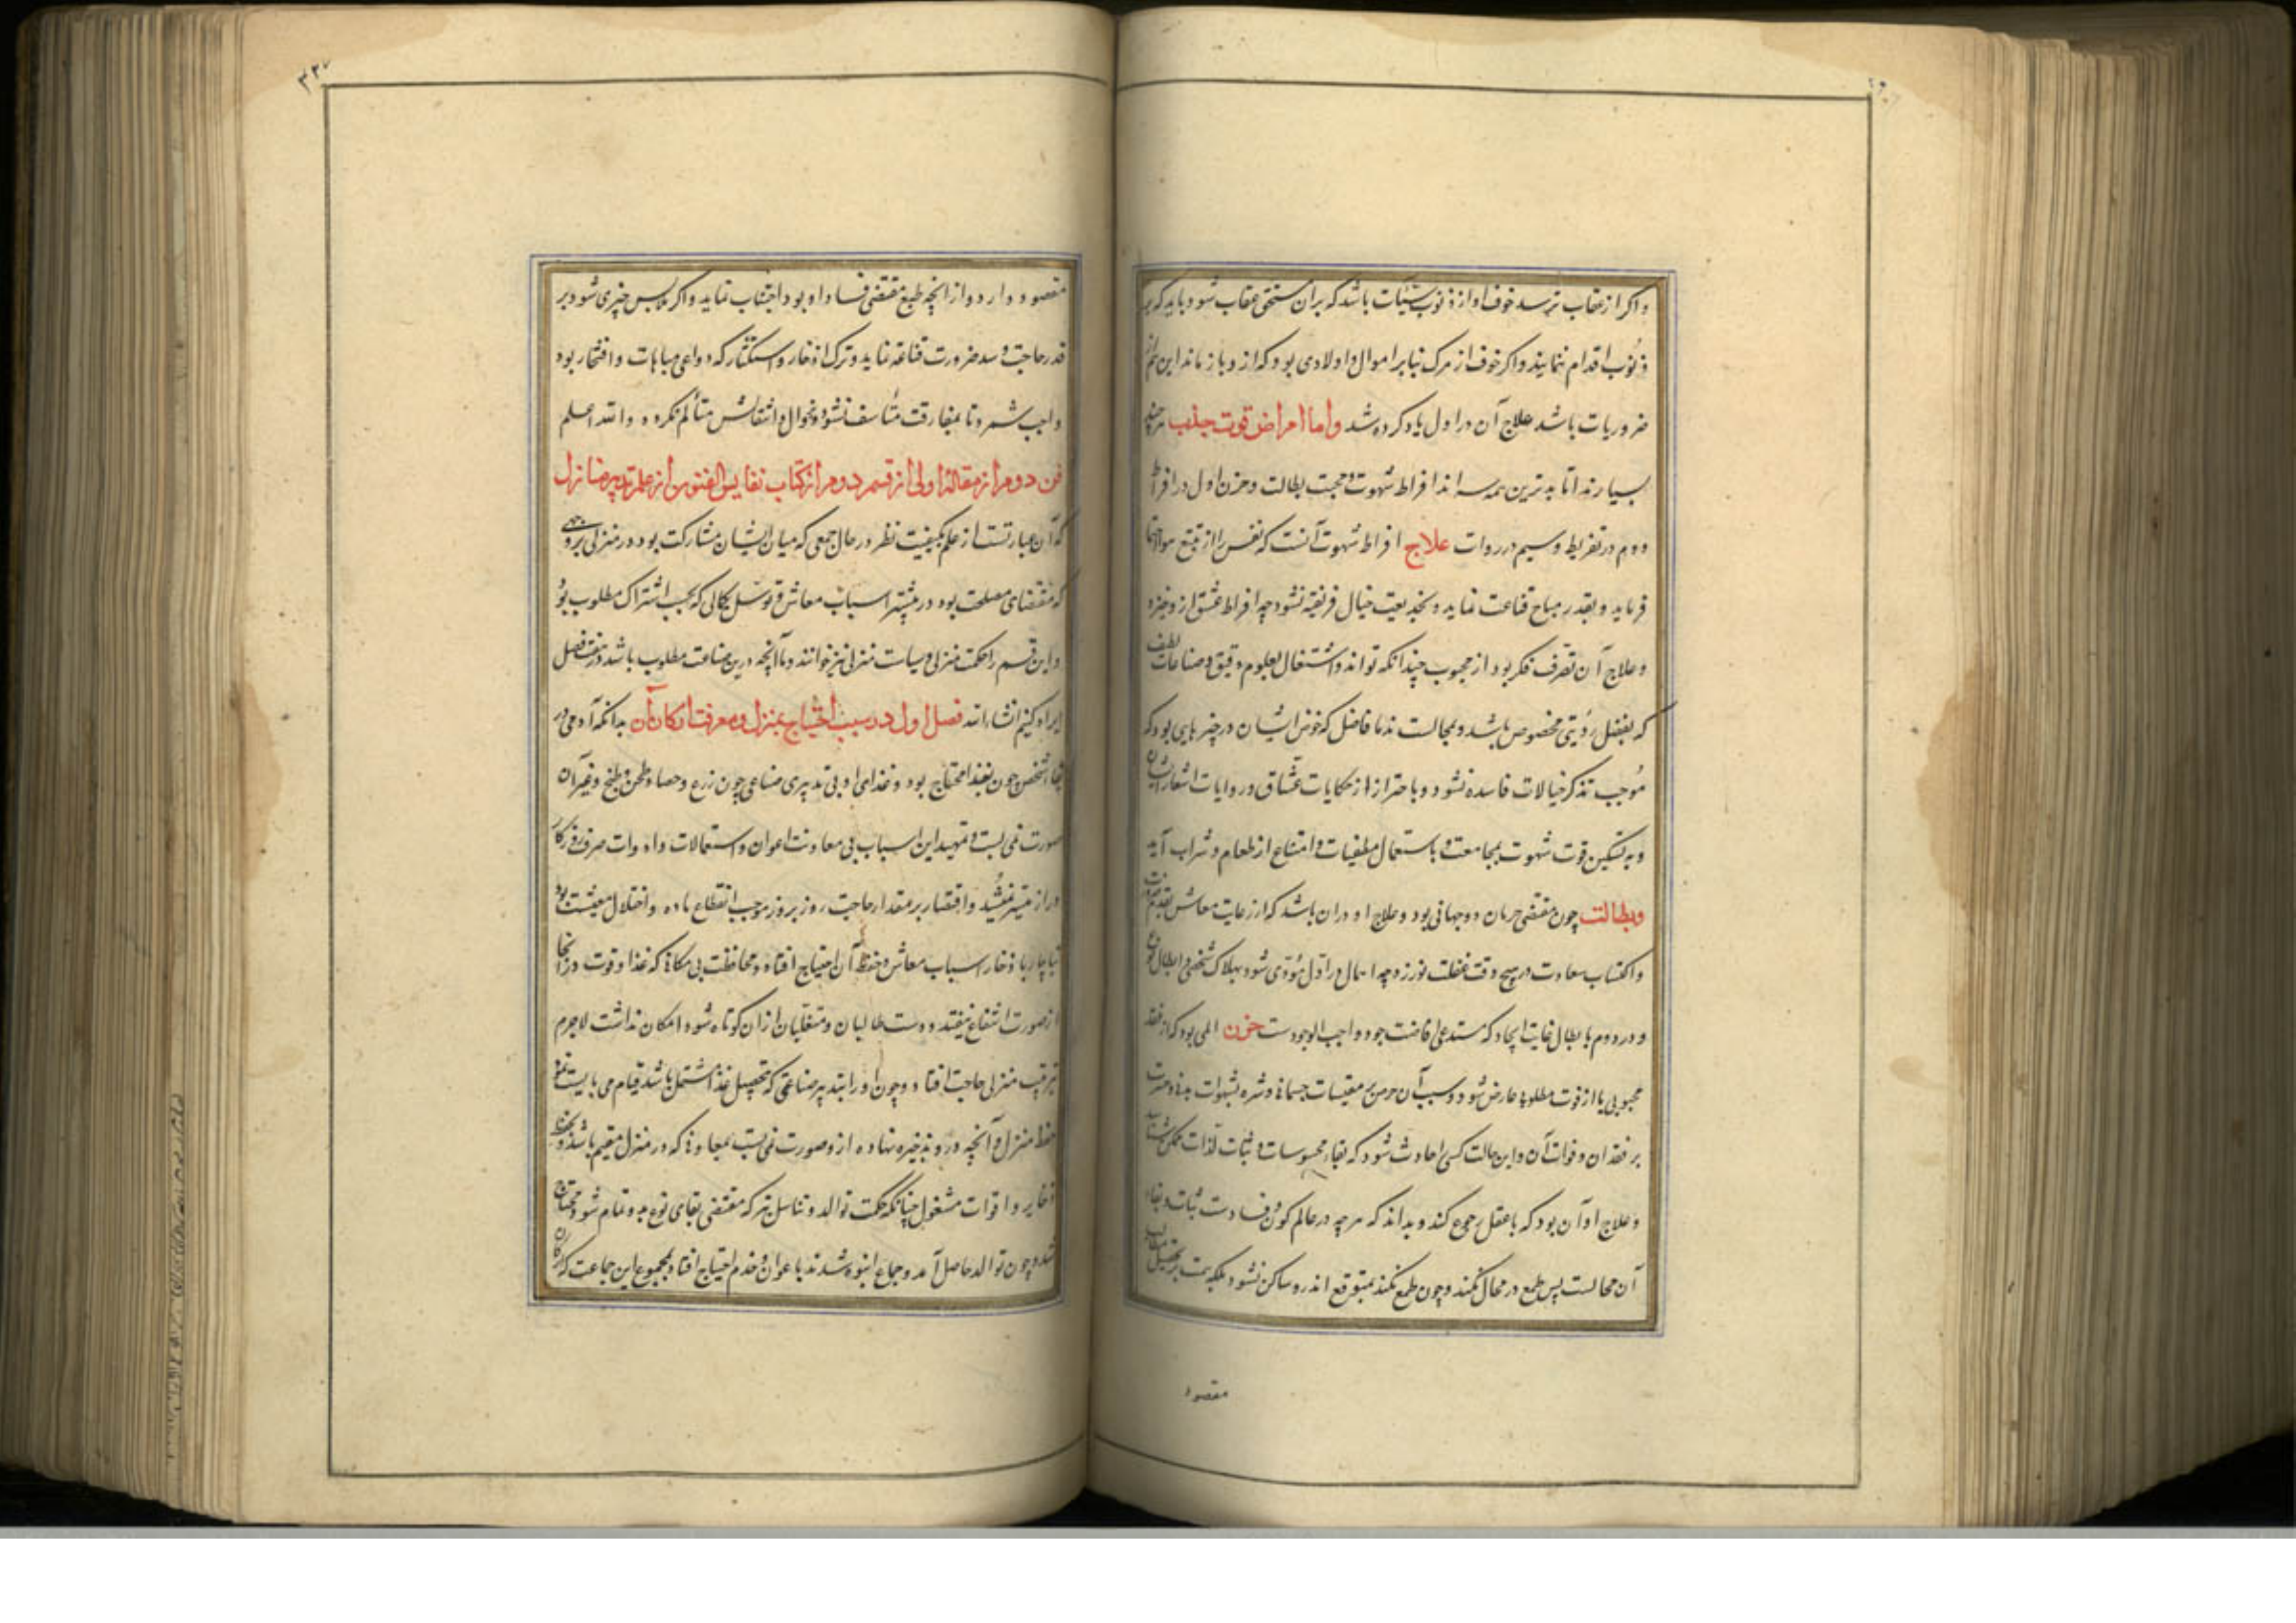 واکر از عقاب ترسد خوف او از ذنوب سیّئات باشد که بران مستحق عقاب شود و باید که بر
ذنُوب اقدام ننماید واکر خوف از مرک بنابر اموال و اولادی بود که از و باز ماند این
ضروریات باشد علاج آن در اول یاد کرده شد واما امراض قوت جذب هرچند
بسیارند اما بدترین همه سه اند افراط شهوت و محبت بطالت و حزن اول در افراط
دوم در تفریط و سیم در ردات علاج افراط شهوت آنست که نفس را از تتبع
فرماید و بقدر مباح قناعت نماید و بخدیعت خیال فریفته نشود چه افراط عشق ازو خیزد
وعلاج آن تصّرف فکر بود از محبوب چندانکه تواند و اشتغال بعلوم دقیق و صناعات لطیف
که بفضل رؤیتی مخصوص باشد و مجالست ندما فاضل که خوض ایشان در چیزهایی بود که
مُوجب تذکر خیالات فاسده نشود و با حتراز از حکایات عشّاق و روایات اشعار ایشان
و به تسکین قوت شهوت بمجامعت و باستعمال مطفیات و امتناع از طعام و شراب آید
وبطالت چون مقتضی حرمان دوجهانی بود و علاج او دران باشد که از رعایت معاش
واکتساب سعادت در هیچ وقت غفلت نورزد چه اهمال در اوّل مؤدّی شود بهلاک شخصی و ابطال
و در دوم بابطال غایت ایجاد که مستدعی افاضت جود واجب الوجودست حزن المی بود که از فقد
محبوبی یا از فوت مطلوبی عارض شود و سبب آن حرص بر مقتنیات جسمانی و شره بشهوات بدنی و حسرت
بر فقدان و فوات آن و این حالت کسی را حادث شود که بقاء محسوسات و ثبات لذّات ممکن شناسد
وعلاج او آن بود که با عقل رجوع کند و بداند که هر چه در عالم کون و فسادست ثبات و بقاء
آن محالست پس طمع در محال نکند و چون طمع نکند بمتوقع اندر و ساکن نشود بلکه همت بر تحصیل مطالب
مقصود
مقصود دارد و از انچه طبع مقتضی فساد او بود اجتناب نماید و اکر ملابس چیزی شود بر
قدر حاجت و سد ضرورت قناعة نماید و ترک ادخار و استکثار که دواعی مباهات و افتخار بود
واجب شمرد تا بمفارقت متأسف نشود و بزوال و انتقالش متألم نکردد والله اعلم
فن دوم از مقالهٔ اولی از قسم دوم از کتاب نفایس الفنون از علم تدبیر منازل
که آن عبارتست از علم بکیفیت نظر در حال جمعی که میان ایشان مشارکت بود در منزلی بر وجهی
که مقتضای مصلحت بود در تیسّر اسباب معاش و توسّل بکمالی که بحسب اشتراک مطلوب بود
و این قسم را حکمت منزلی و سیاست منزلی نیز خوانند و ما آنچه درین صناعت مطلوب باشد در هفت فصل
ایراد کنیم انشاءالله فصل اول در سبب احتیاج بمنزل و معرفت ارکان آن بدانکه آدمی در
بقاء شخص چون بغذا محتاج بود و غذای او بی تدبیری صناعی چون زرع و حصاد و طحن و طبخ و غیر آن
صورت نمی بست و تمهید این اسباب بی معاونت اعوان و استعمالات و ادوات صرف روزکار
دراز متیسّر نمیُشد و اقتصار بر مقدار حاجت روز بروز موجب انقطاع ماده و اختلال معیشت بود
بناچار بادخار اسباب معاش و حفظ آن احتیاج افتاد و محافظت بی مکانی که غذا و قوت در آنجا
از صورت انتفاع نیفتد و دست طالبان و متغلبان از ان کوتاه شود امکان نداشت لاجرم
بترتیب منزلی حاجت افتاد و چون او را بتدبیر صناعتی که بتحصیل غذا مشتمل باشد قیام می بایست نمود
حفظ منزل و آنچه در و بذخیره نهاده ازو صورت نمی بست بمعاونی که در منزل مقیم باشد و بحفظ
ذخایر و اقوات مشغول چنانکه حکمت توالد و تناسل نیز که مقتضی بقای نوع بدو تمام شود محتاج
شد و چون توالد حاصل آمد و جماع انبوه شدند باعوان و خدم احتیاج افتاد و بمجموع این جماعت که ارکان